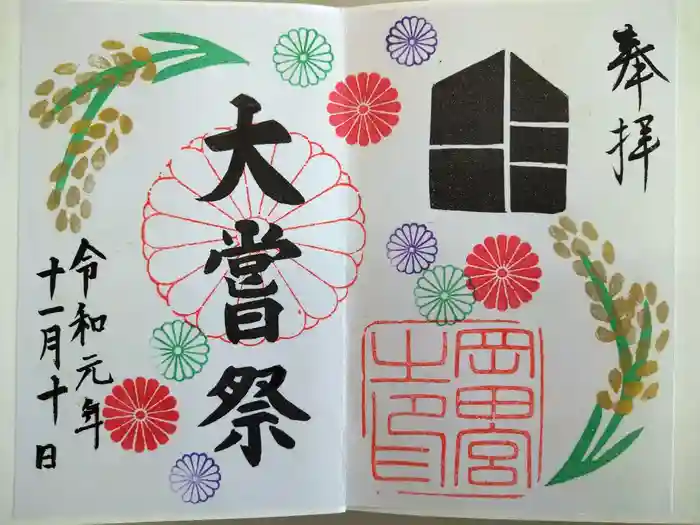 奉拝
岡田宮
之印
大嘗祭
令和元年
十一月十日